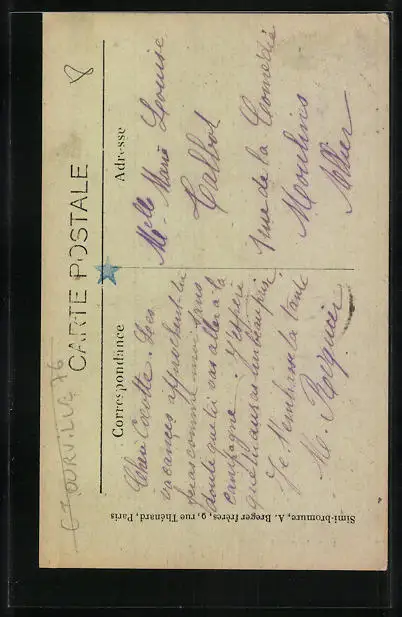 GTOURVILLE 76
8
CARTE POSTALE
Correspondance
Chère Cocotte. Les
vacances approchent tu
feras comme moi sans
doute que tu vas aller à la
campagne. J'espère
que tu auras un beau prix.
Je t'embrasse ta tante
M.
Adresse
Melle Marie Louise
Talbot
rue de la Comédie
Moulins
Allier
Simi-bromure, A. Breger frères, 9, rue Thénard, Paris